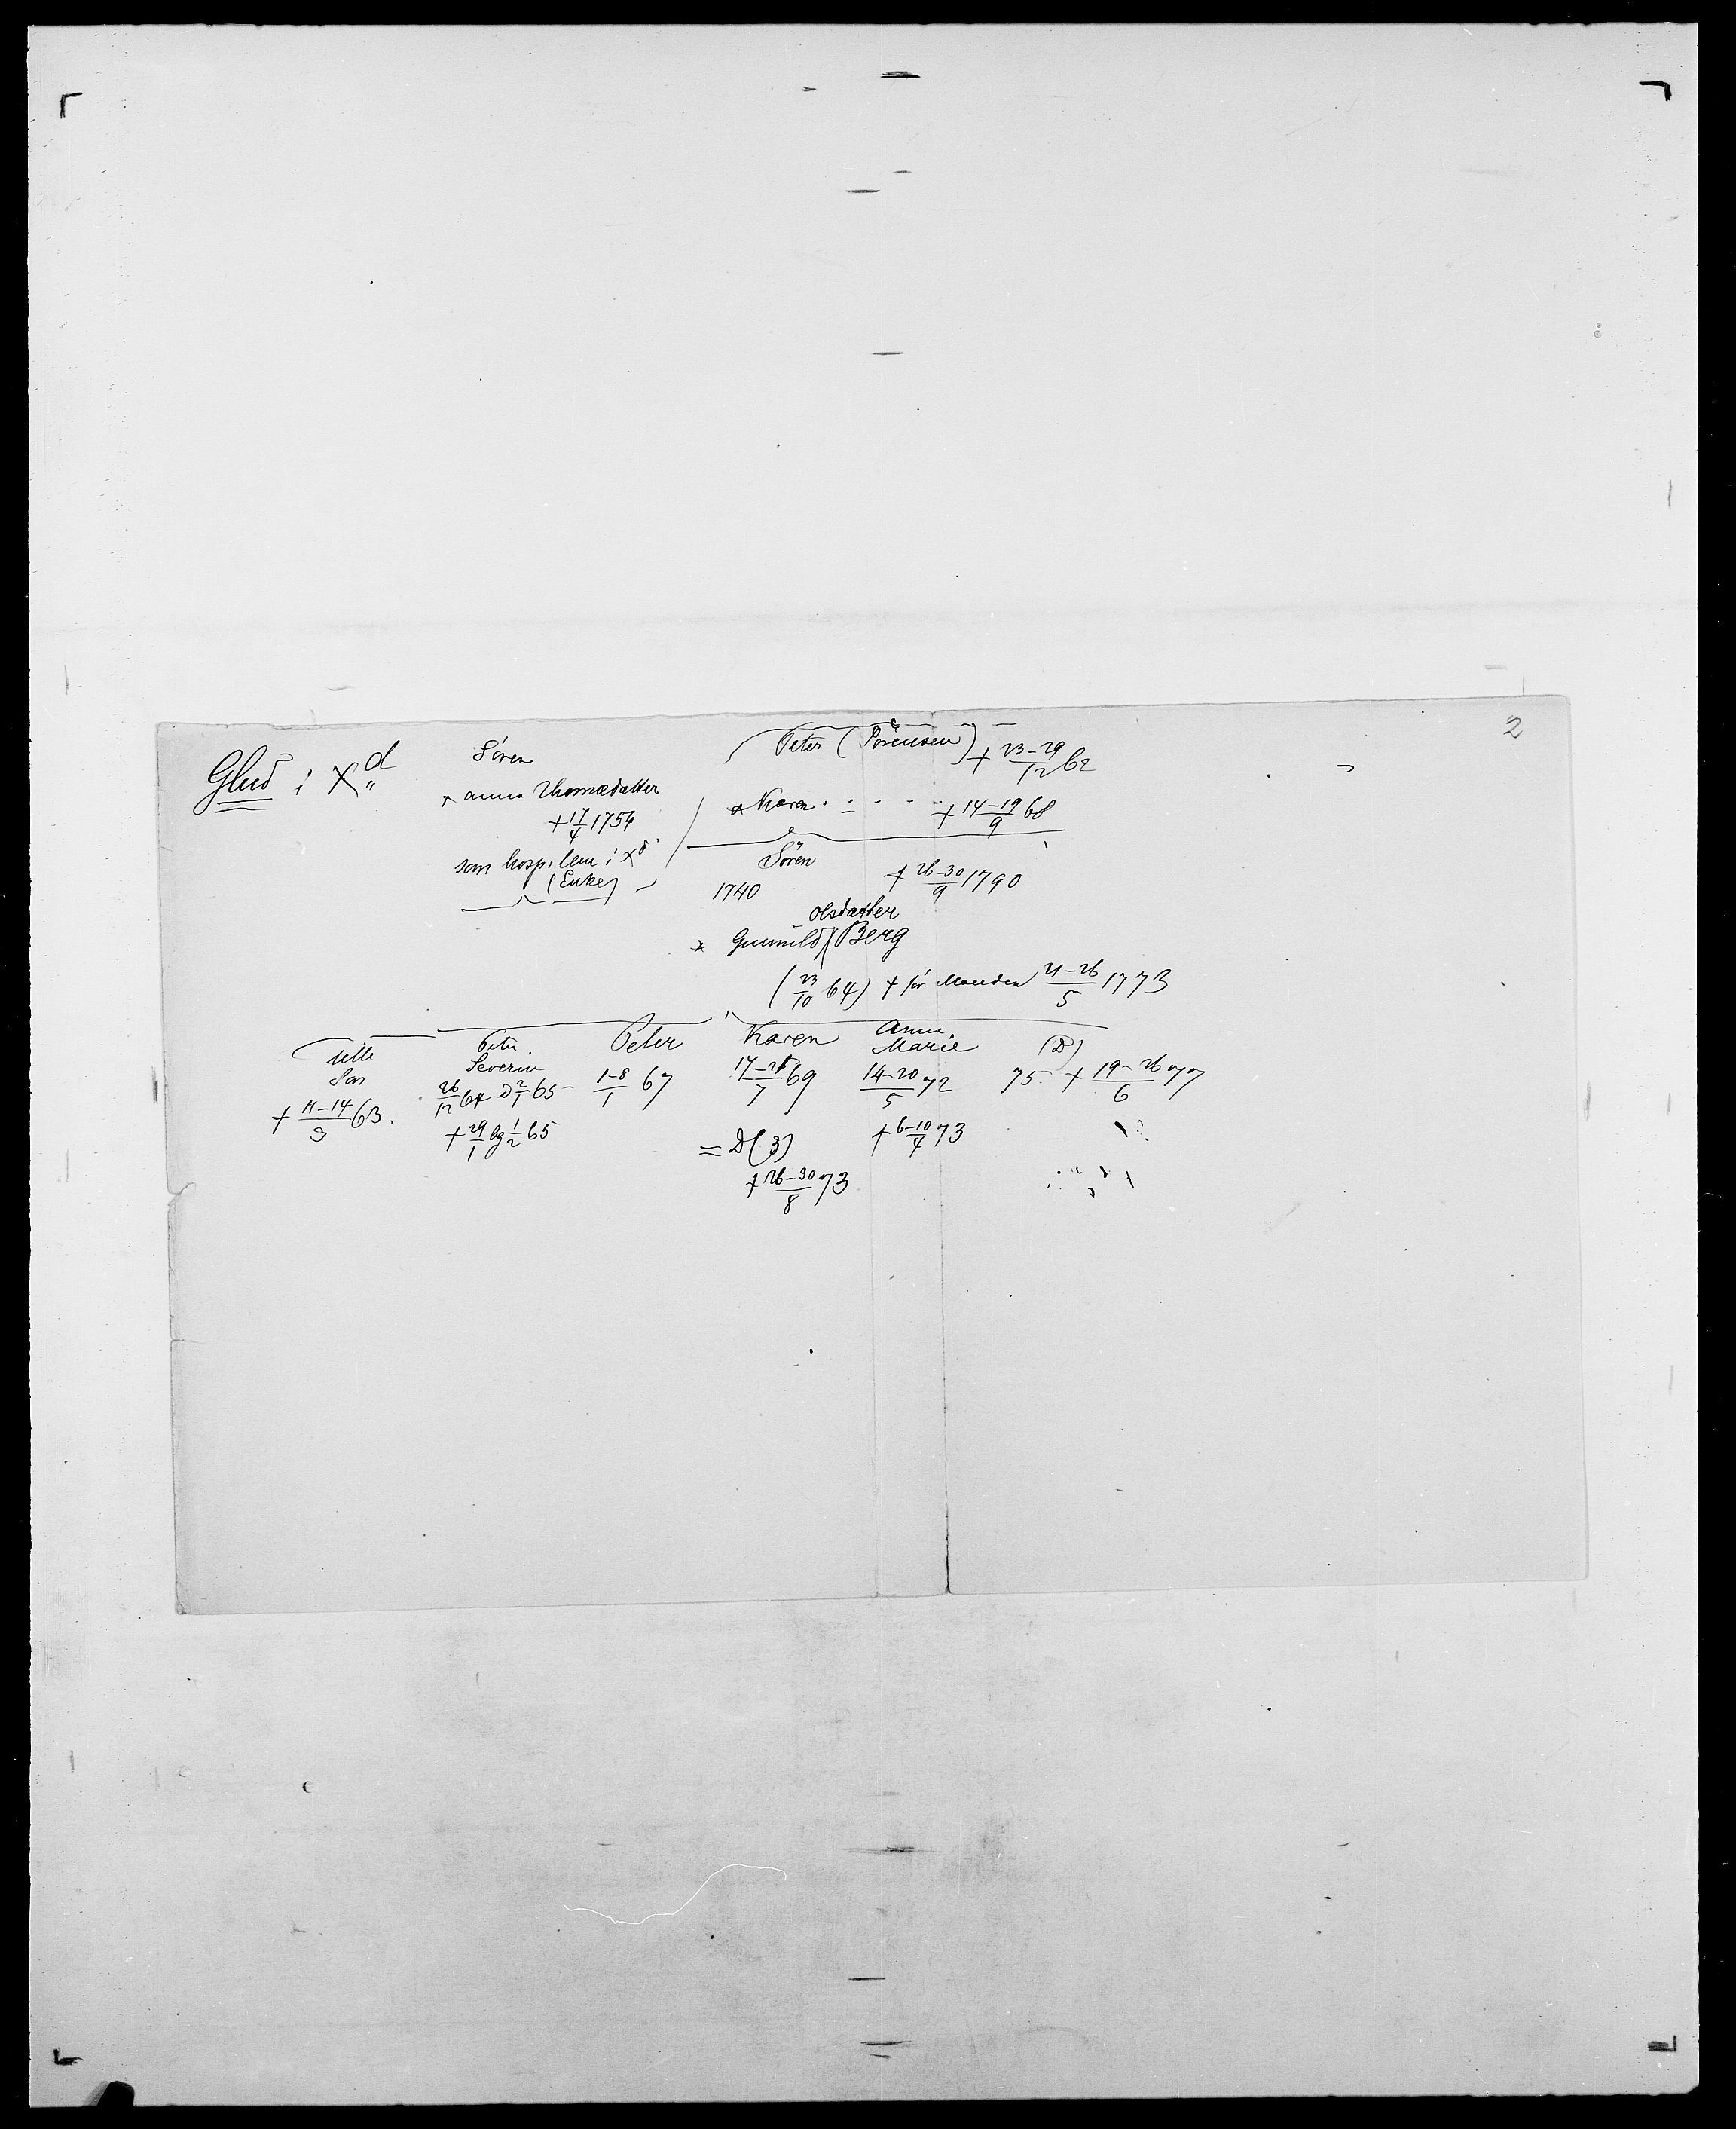 2
Glud i Xd
Søren
x Anna Thomædatter
+ 17/4 1754
som hospilem i Xd
(Enke)
Peter (Sørensen) + 23-29/12 62
x Karen + 14-19/9 68
Søren
1740 + 26-30/9 1790
Olsdatter
x Gunnild Berg
(23/10 64) + før Manden 21-26/5 1773
lille
Søn
+ 11-14/3 63.
Peter
Severin
26/12 64 D 2/1 65
+ 29/1 bg 1/2 65
Peter
1-8/1 67
Karen
17-21/7 69
= D (3)
+ 26-30/8 73
Anne
Marie
14-20/5 72
+ 6-10/4 73
(D)
75 + 19-26/6 77